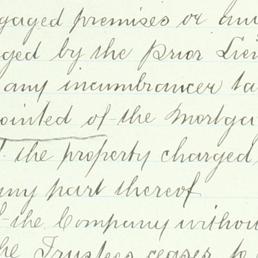 gaged premises or any
ged by the Prior Lien
any incumbrancer ta
ointed of the Mortga
the property charged
any part thereof
the Company withou
he Trustees ceases to